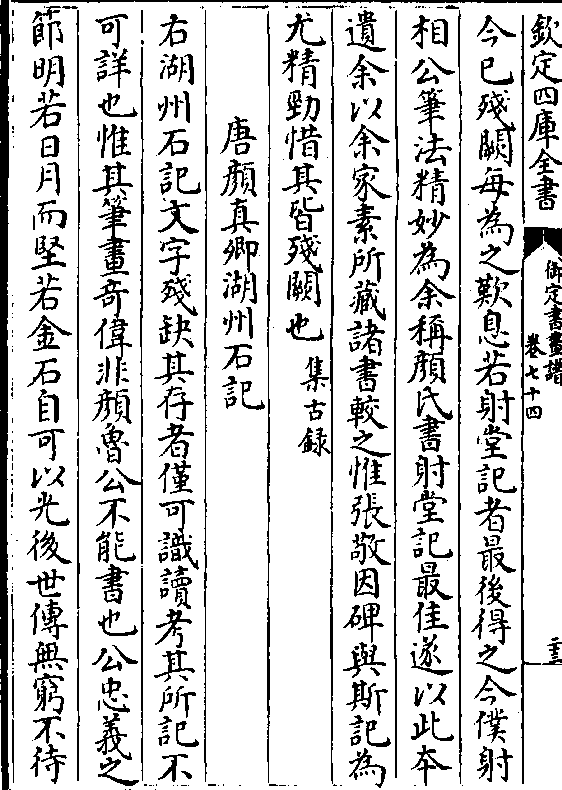 欽定四庫全書
御定書畫譜
卷七十四
二十三
今已殘闕每為之歎息若射堂記者最後得之今僕射
相公筆法精妙為余稱顔氏書射堂記最佳遂以此本
遺余以余家素所藏諸書較之惟張敬因碑與斯記為
尤精勁惜其皆殘闕也 集古録
唐顔真卿湖州石記
右湖州石記文字殘缺其存者僅可識讀考其所記不
可詳也惟其筆畫奇偉非顔魯公不能書也公忠義之
節明若日月而堅若金石自可以光後世傳無窮不待